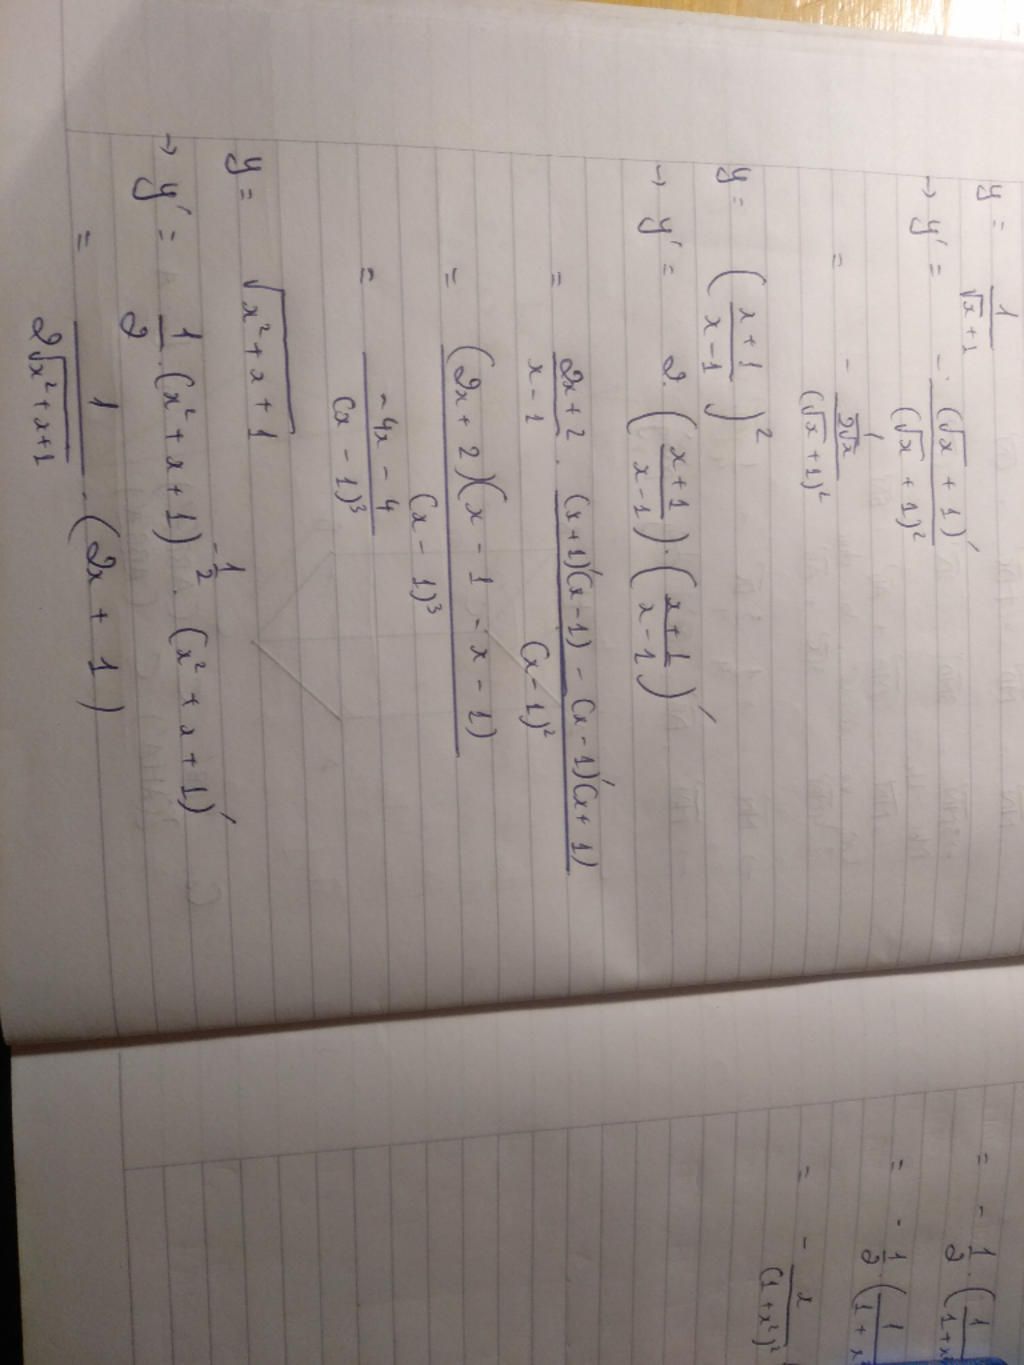 y = 1/(√x + 1)
→ y' = - (√x + 1)'/(√x + 1)²
= - (1/(2√x))/(√x + 1)²
y = ((x + 1)/(x - 1))²
→ y' = 2 · ((x + 1)/(x - 1)) · ((x + 1)/(x - 1))'
= (2x + 2)/(x - 1) · ((x + 1)'(x - 1) - (x - 1)'(x + 1))/(x - 1)²
= (2x + 2)(x - 1 - x - 1)/(x - 1)³
= (-4x - 4)/(x - 1)³
y = √(x² + x + 1)
→ y' = 1/2 · (x² + x + 1)^(-1/2) · (x² + x + 1)'
= 1/(2√(x² + x + 1)) · (2x + 1)
= - 1/2 · (1/(1 + x²
= - 1/2 · (1/(1 + x²
= - x/(1 + x²)²